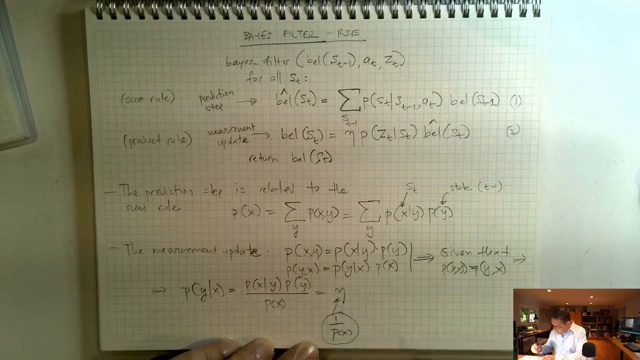 BAYES FILTER - RSE
bayes-filter (bel(S_{t-1}), a_t, Z_t)
for all S_t:
(sum rule) prediction step → bel^(S_t) = Σ_{S_{t-1}} p(S_t | S_{t-1}, a_t) bel(S_{t-1}) (1)
(product rule) measurement update → bel(S_t) = η p(Z_t | S_t) bel^(S_t) (2)
return bel(S_t)
- The prediction step is related to the S_t state (t-1)
sum rule p(x) = Σ_y p(x,y) = Σ_y p(x|y) p(y)
- The measurement update: p(x,y) = p(x|y) · p(y) ⟹ Given that ⟹
p(y,x) = p(y|x) p(x) p(x,y) = p(y,x)
⟹ p(y|x) = p(x|y) p(y) / p(x) = η
1/p(x)